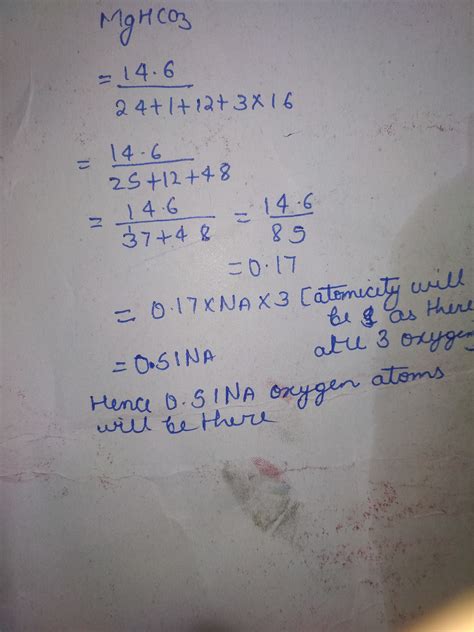 MgHCO3
= 14.6 / 24+1+12+3×16
= 14.6 / 25+12+48
= 14.6 / 37+48 = 14.6 / 85
= 0.17
= 0.17×NA×3 [atomicity will
be 3 as there
are 3 oxygen
= 0.51NA
Hence 0.51NA oxygen atoms
will be there